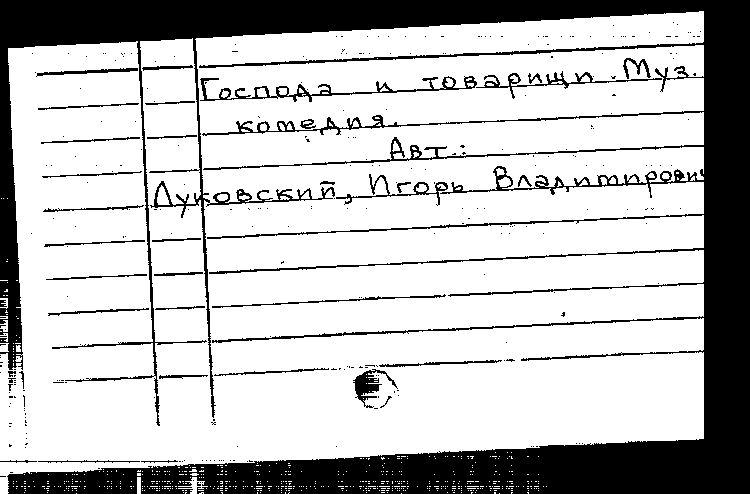 Господа и товарищи. Муз.
комедия.
Авт.:
Луковский, Игорь Владимирович